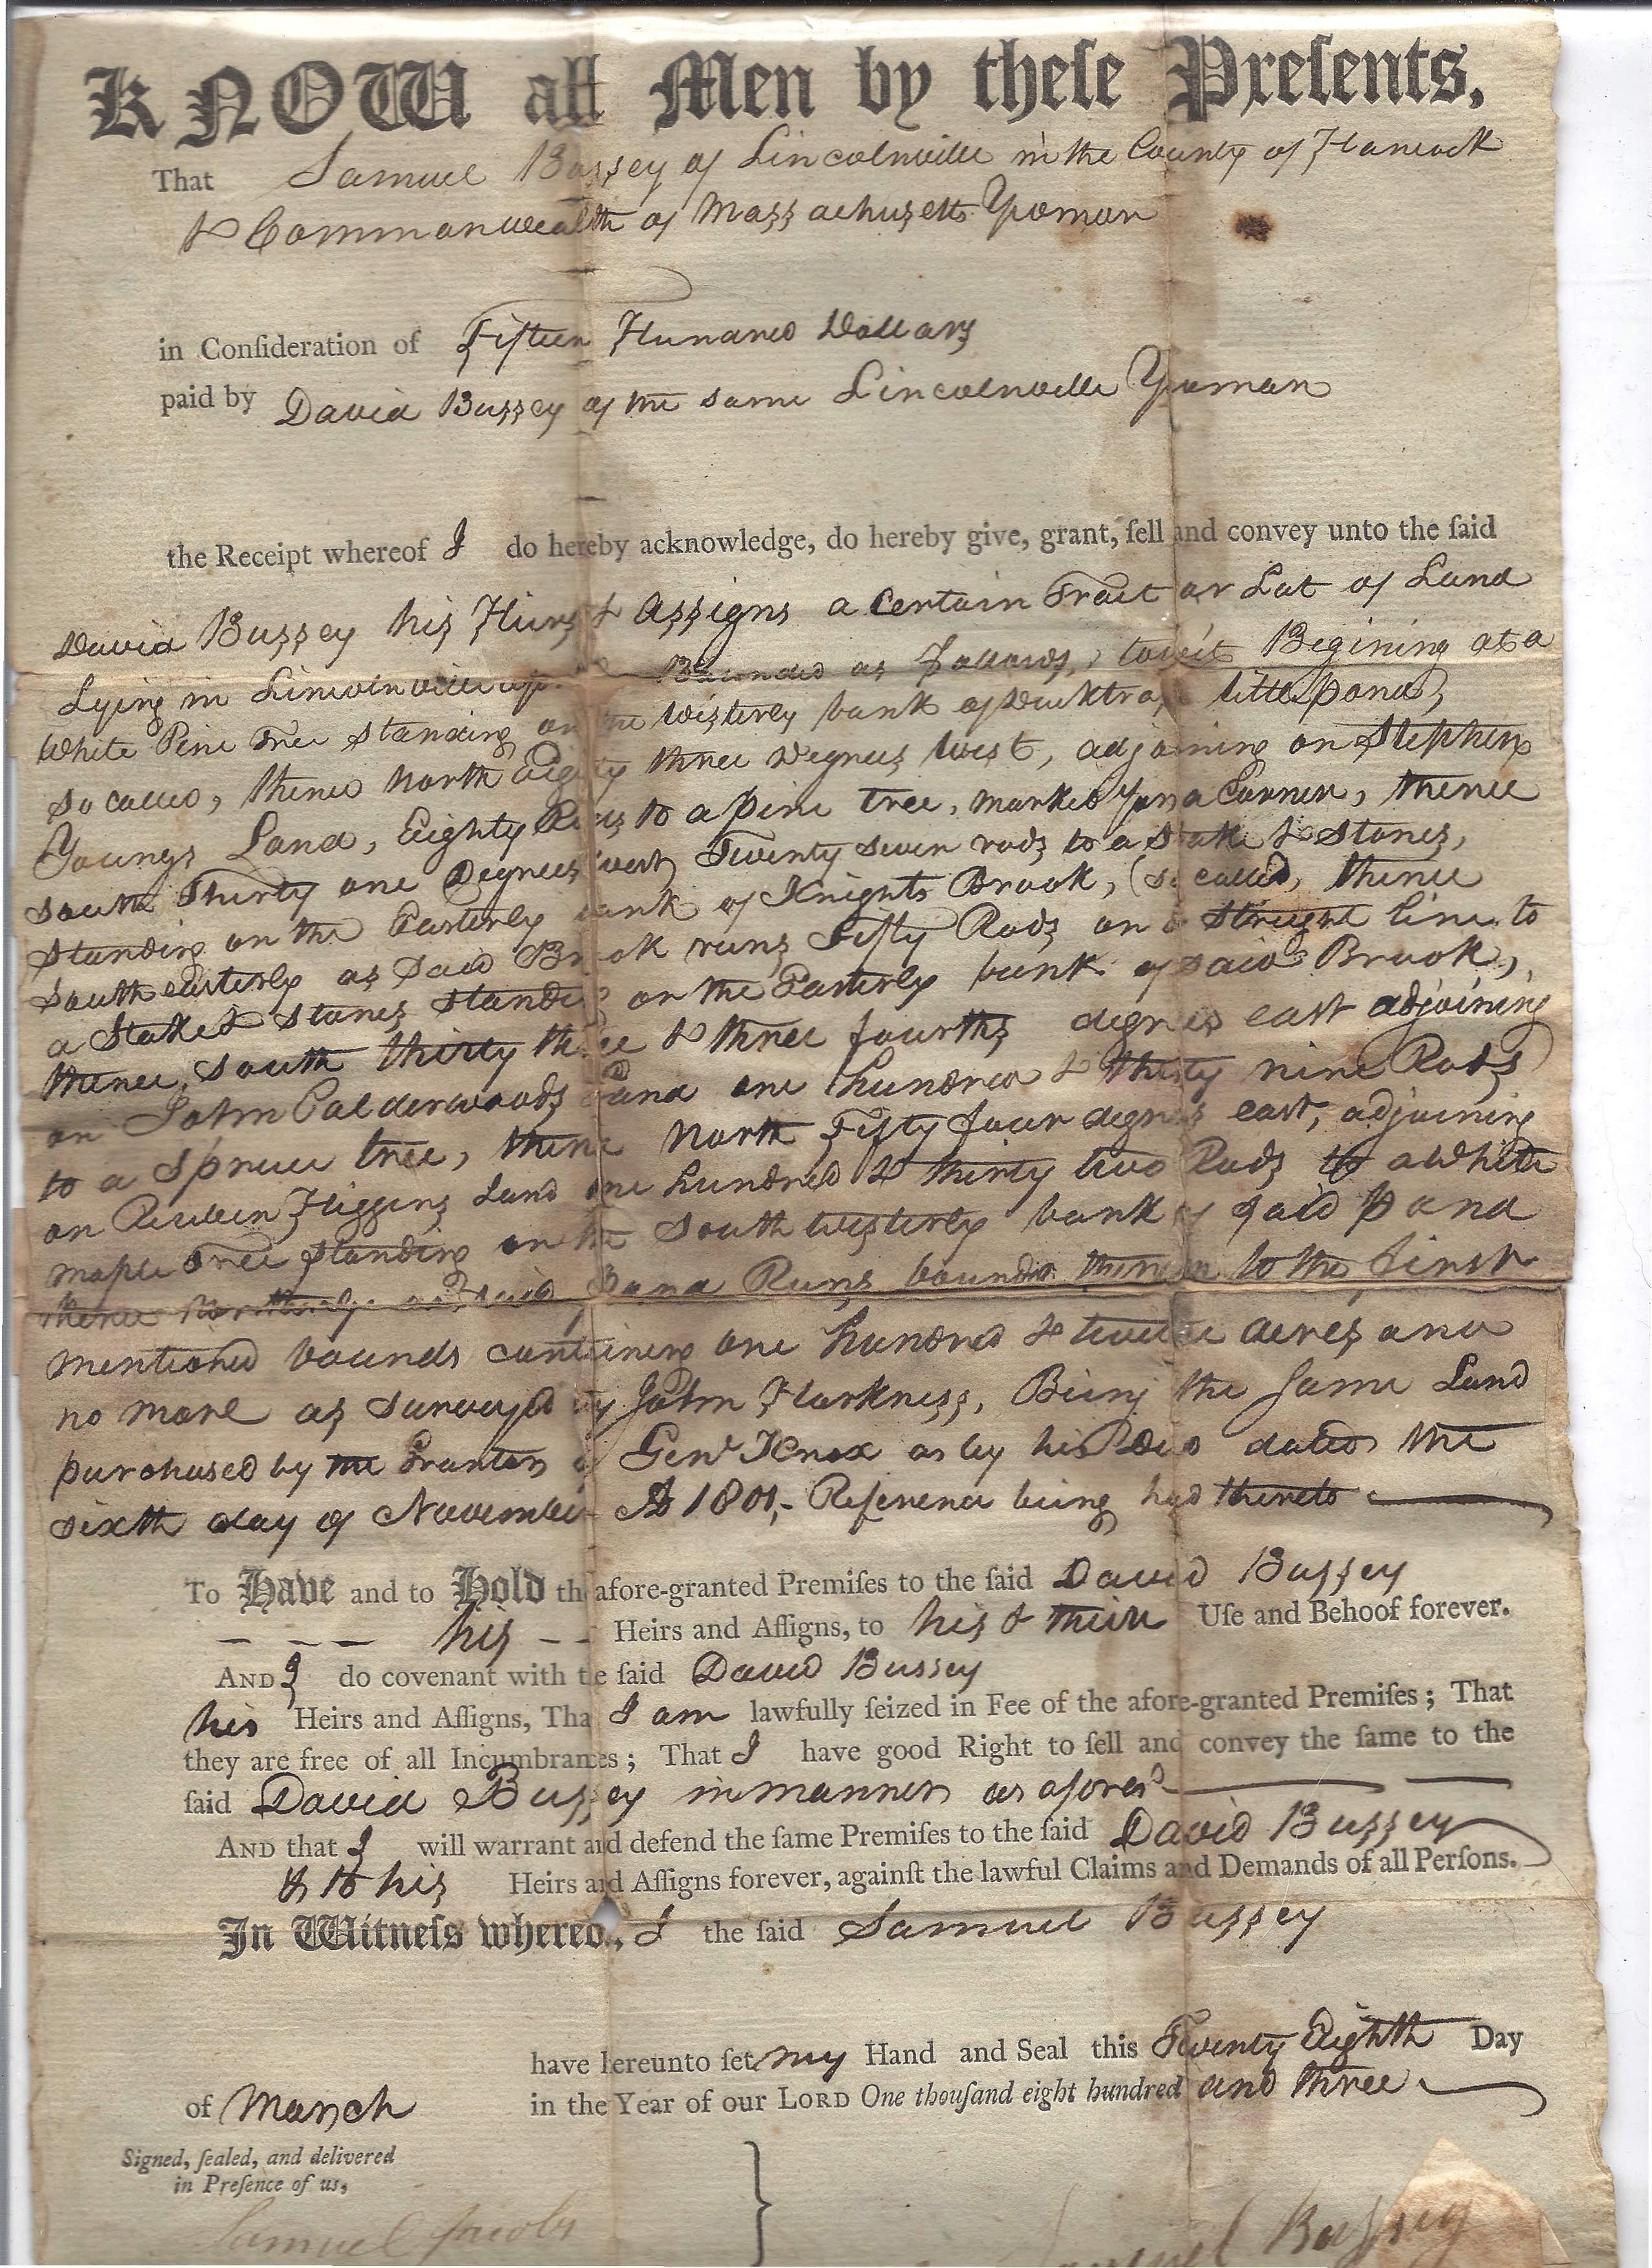 KNOW all Men by theſe Preſents,
That Samuel Bussey of Lincolnville in the County of Hancock
& Commonwealth of Massachusetts Yeoman
in Conſideration of Fifteen Hundred Dollars
paid by David Bussey of the same Lincolnville Yeoman
the Receipt whereof I do hereby acknowledge, do hereby give, grant, ſell and convey unto the ſaid
David Bussey his Heirs & Assigns a Certain Tract or Lot of Land
Lying in Lincolnville Bounded as follows, towit Begining at a
White Pine Tree Standing on the Westerly bank of Ducktrap little pond,
so called, thence North Eighty three Degrees West, adjoining on Stephen
Youngs Land, Eighty Rods to a pine tree, marked for a Corner, thence
South Thirty one Degrees West Twenty Seven rods to a Stake & Stones,
Standing on the Easterly bank of Knights Brook, (so called, thence
Southeasterly as Said Brook runs Fifty Rods on a straight line to
a Stake & Stones standing on the Easterly bank of said Brook,
thence, South thirty three & three fourths degrees east adjoining
on John Calderwoods Land one hundred & thirty nine Rods
to a Spruce tree, thence North Fifty four degrees east, adjoining
on Reuben Higgins Land one hundred & thirty two Rods to a White
maple Tree standing on the South westerly bank of said Pond
thence Northerly as said Pond Runs to the first
mentioned bounds containing one hundred & twelve acres and
no more as surveyed by John Harkness, Being the same Land
purchased by the Grantor of Genl Knox as by his Deed dated the
sixth day of November AD 1801,- Reference being had thereto
To Have and to Hold the afore-granted Premiſes to the ſaid David Bussey
- - - his - - Heirs and Aſſigns, to his & their Uſe and Behoof forever.
AND I do covenant with the ſaid David Bussey
his Heirs and Aſſigns, That I am lawfully ſeized in Fee of the afore-granted Premiſes; That
they are free of all Incumbrances; That I have good Right to ſell and convey the ſame to the
ſaid David Bussey in manner as aforesd
AND that I will warrant and defend the ſame Premiſes to the ſaid David Bussey
& to his Heirs and Aſſigns forever, againſt the lawful Claims and Demands of all Perſons.
In Witneſs whereof, I the ſaid Samuel Bussey
have hereunto ſet my Hand and Seal this Twenty Eighth Day
of March in the Year of our LORD One thouſand eight hundred and three
Signed, ſealed, and delivered
in Preſence of us,
Samuel Jacobs
Samuel Bussey